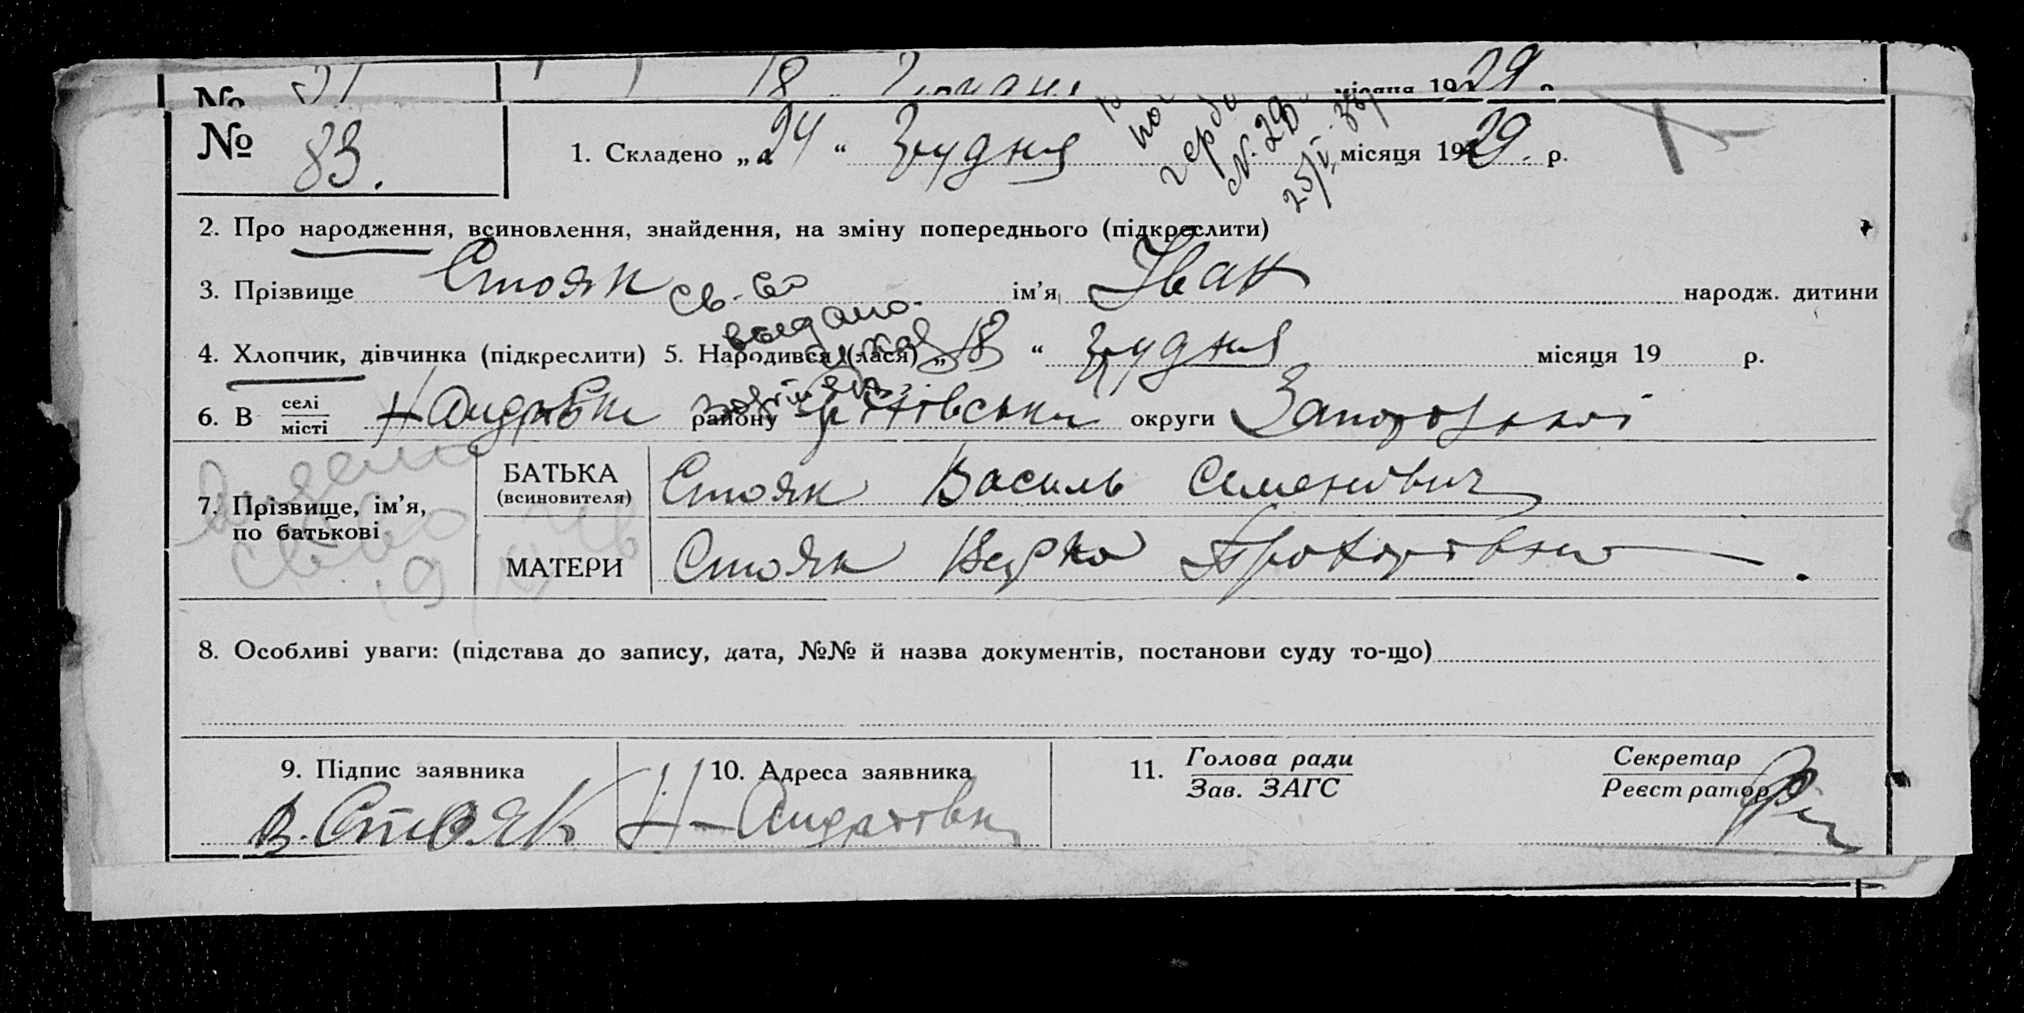 № 18 місяця 1929 р.
№ 83. 1. Складено „ 24 “ Грудня місяця 1929. р.
N. 29
2. Про народження, всиновлення, знайдення, на зміну попереднього (підкреслити)
3. Прізвище Стояк ім’я Іван народж. дитини
св-во
выдано
4. Хлопчик, дівчинка (підкреслити) 5. Народився (лася) „ 18 “ Грудня місяця 19 р.
6. В селі/місті Н Андрівки району округи Запорізької
7. Прізвище, ім’я, по батькові
БАТЬКА (всиновителя) Стояк Василь Семенович
МАТЕРИ Стояк Прохорівна
8. Особливі уваги: (підстава до запису, дата, №№ й назва документів, постанови суду то-що)
9. Підпис заявника 10. Адреса заявника 11. Голова ради Секретар
Зав. ЗАГС Реєстратор
В. Стояк Н-Андрівка